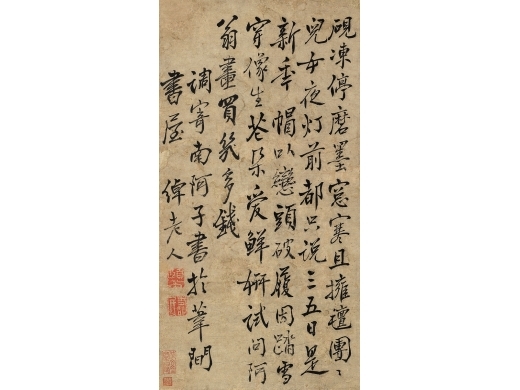 硯凍停磨墨窓寒且擁氊團〻
兒女夜灯前都只說三五日是
新年帽以戀頭破履因踏雪
穿像生花朵愛鮮妍試問阿
翁畫買幾多錢
調寄南阿子書於葦間
書屋 綽老人